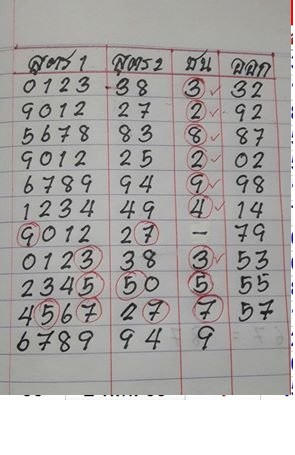 สูตร 1 สูตร 2 ชน ออก
0123 38 3 32
9012 27 2 92
5678 83 8 87
9012 25 2 02
6789 94 9 98
1234 49 4 14
9012 27 - 79
0123 38 3 53
2345 50 5 55
4567 27 7 57
6789 949 9